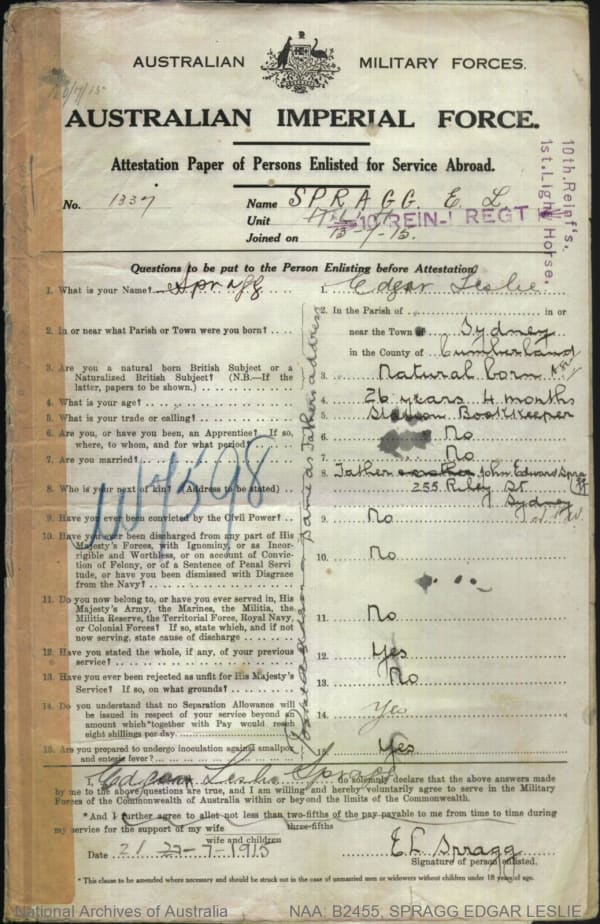 20/7/15
AUSTRALIAN MILITARY FORCES.
AUSTRALIAN IMPERIAL FORCE.
Attestation Paper of Persons Enlisted for Service Abroad.
10th. Reinf's.
1st. Light Horse.
No. 1337 Name SPRAGG. E. L
Unit 10 REIN-1 REGT
Joined on 13-7-15.
Questions to be put to the Person Enlisting before Attestation.
1. What is your Name? Spragg
1. Edgar Leslie
2. In or near what Parish or Town were you born?
2. In the Parish of in or
near the Town of Sydney
in the County of Cumberland
3. Are you a natural born British Subject or a
Naturalized British Subject? (N.B.—If the
latter, papers to be shown.)
3. Natural born
4. What is your age?
4. 26 years 4 months
5. What is your trade or calling?
5. Station Bookkeeper
6. Are you, or have you been, an Apprentice? If so,
where, to whom, and for what period?
6. No
7. Are you married?
7. No
8. Who is your next of kin? (Address to be stated)
8. Father John Edward Spragg
255 Riley St.
Sydney
N.S.W.
W7398
9. Have you ever been convicted by the Civil Power?
9. No
10. Have you ever been discharged from any part of His
Majesty's Forces, with Ignominy, or as Incor-
rigible and Worthless, or on account of Convic-
tion of Felony, or of a Sentence of Penal Servi-
tude, or have you been dismissed with Disgrace
from the Navy?
10. No
11. Do you now belong to, or have you ever served in, His
Majesty's Army, the Marines, the Militia, the
Militia Reserve, the Territorial Force, Royal Navy,
or Colonial Forces? If so, state which, and if not
now serving, state cause of discharge
11. No
12. Have you stated the whole, if any, of your previous
service?
12. Yes
13. Have you ever been rejected as unfit for His Majesty's
Service? If so, on what grounds?
13. No
14. Do you understand that no Separation Allowance will
be issued in respect of your service beyond an
amount which together with Pay would reach
eight shillings per day.
14. Yes
15. Are you prepared to undergo inoculation against smallpox
and enteric fever?
15. Yes
I, Edgar Leslie Spragg do solemnly declare that the above answers made
by me to the above questions are true, and I am willing and hereby voluntarily agree to serve in the Military
Forces of the Commonwealth of Australia within or beyond the limits of the Commonwealth.
*And I further agree to allot not less than two-fifths of the pay payable to me from time to time during
three-fifths
my service for the support of my wife
wife and children
Date 21-7-1915
E L Spragg
Signature of person enlisted.
* This clause to be amended where necessary and should be struck out in the case of unmarried men or widowers without children under 18 years of age.
National Archives of Australia NAA: B2455, SPRAGG EDGAR LESLIE